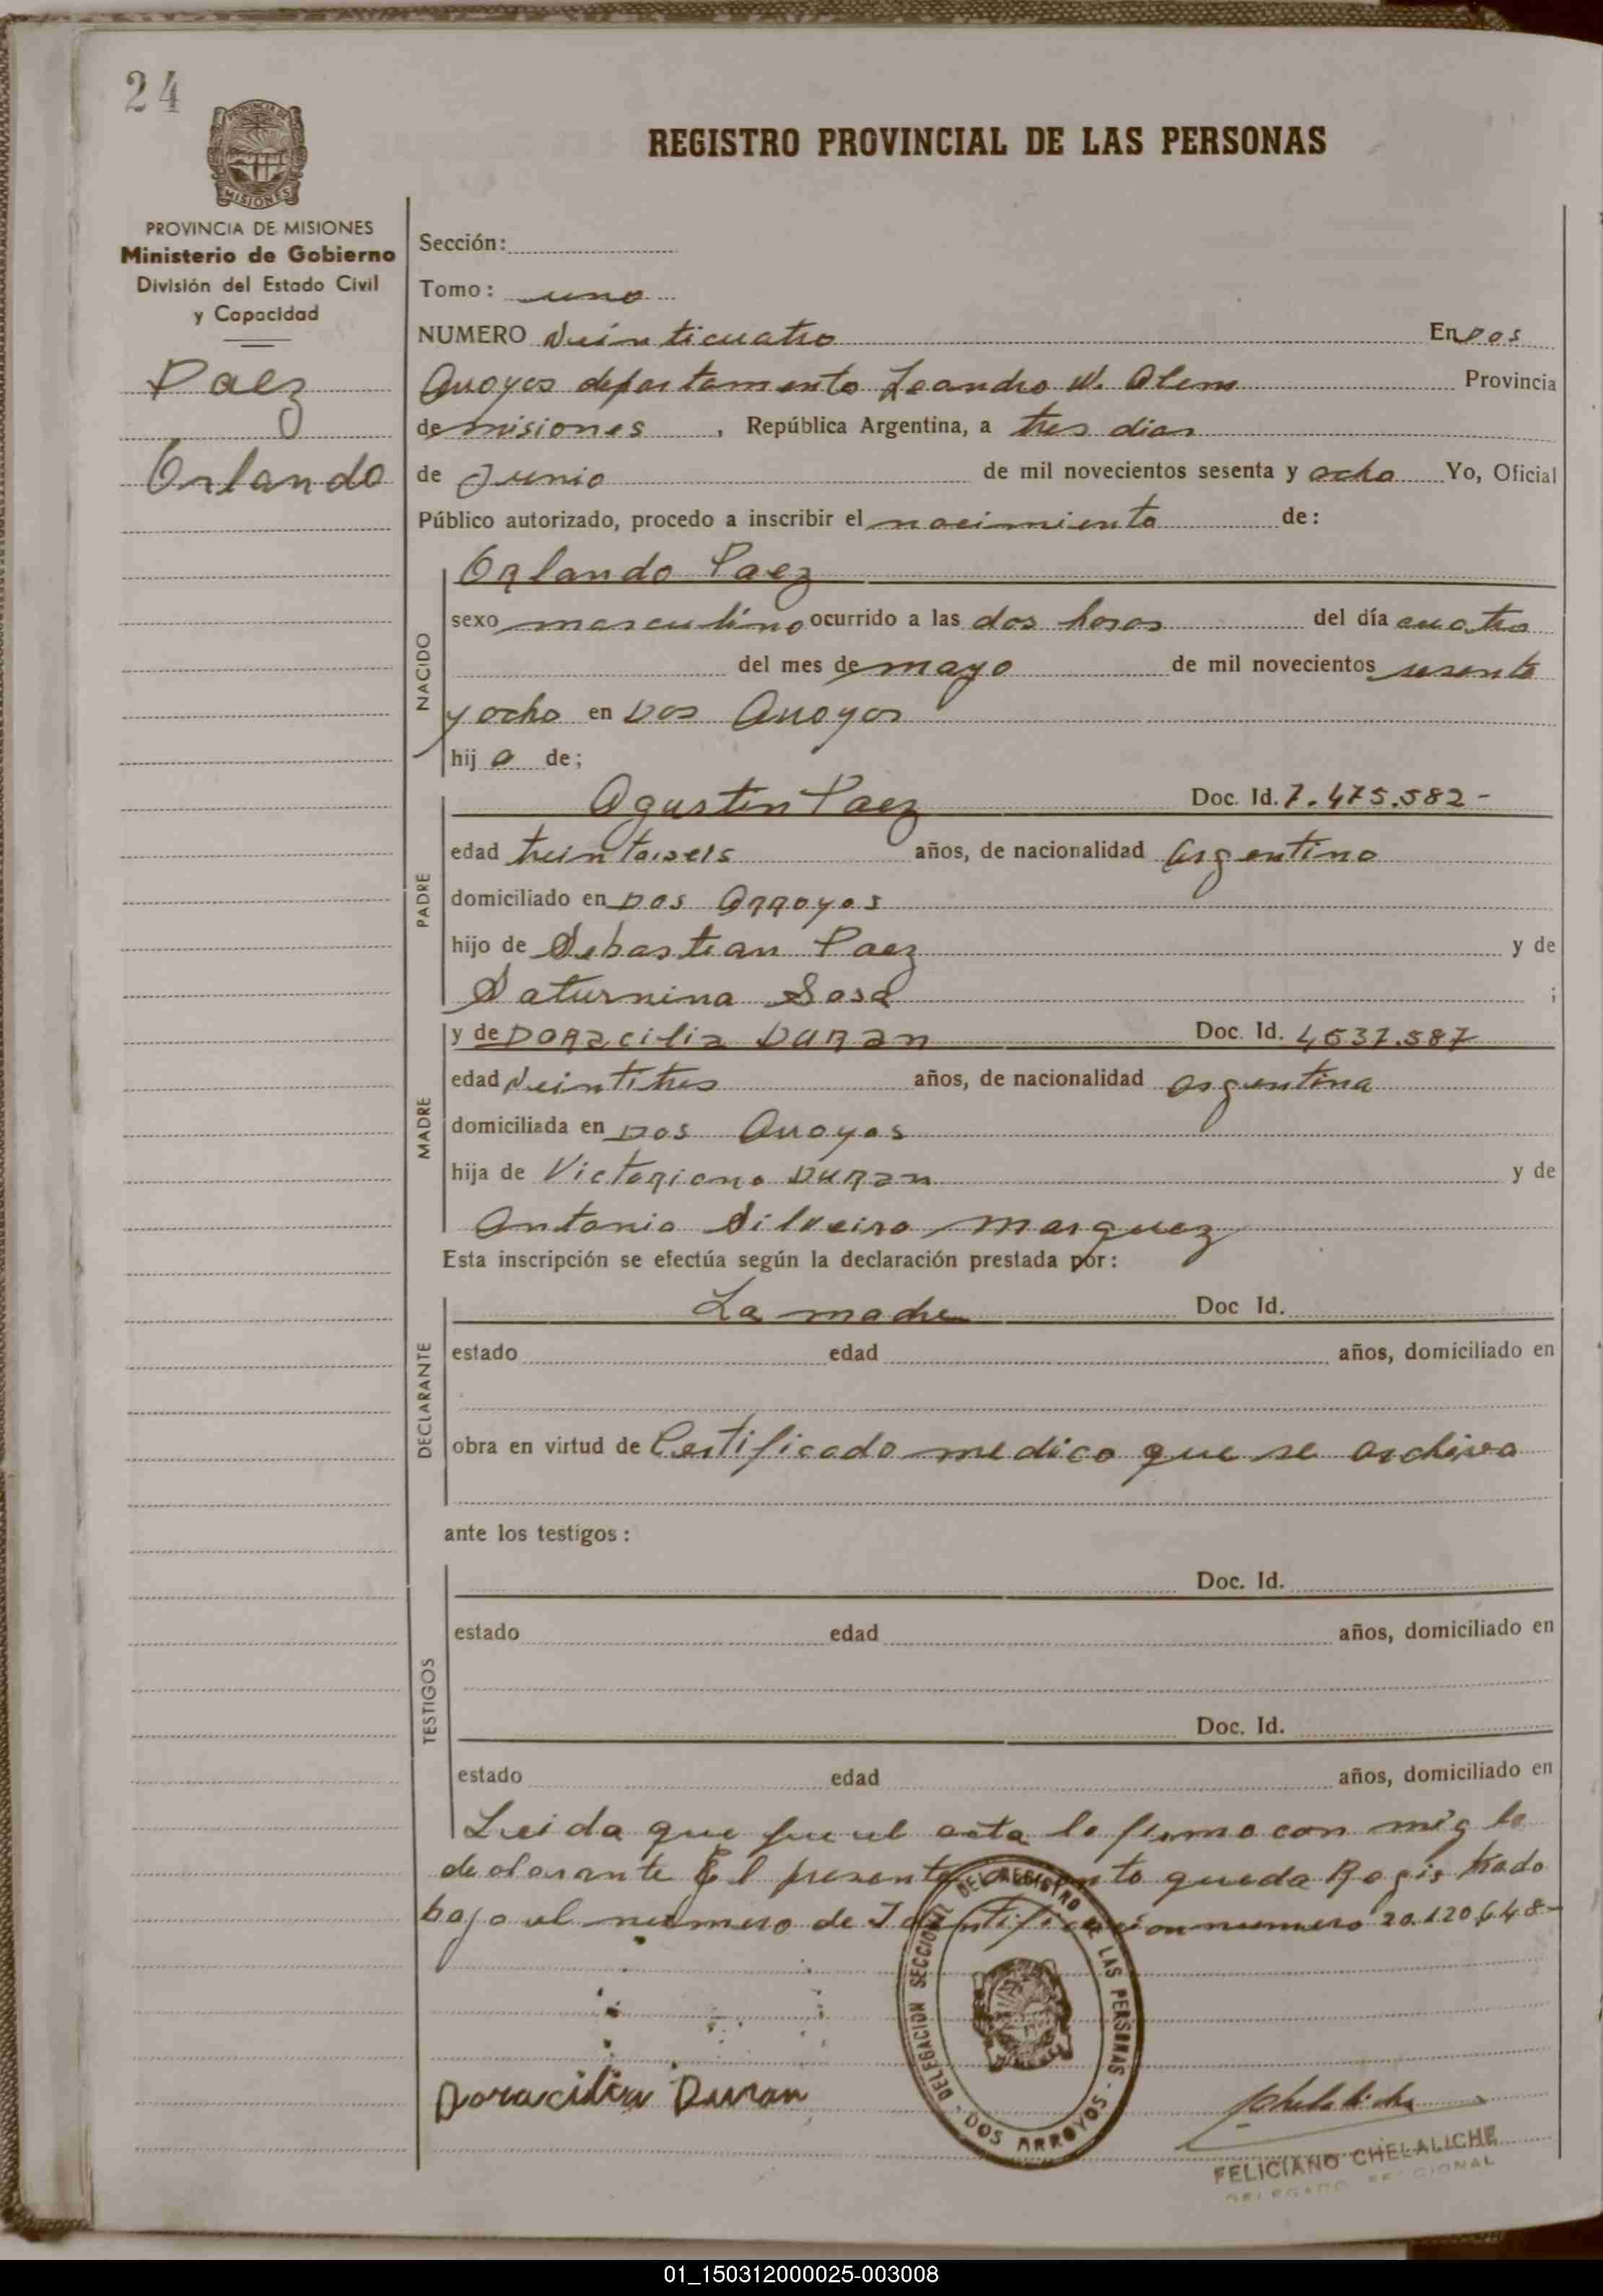 24
REGISTRO PROVINCIAL DE LAS PERSONAS
PROVINCIA DE MISIONES
Ministerio de Gobierno
División del Estado Civil
y Capacidad
Paez
Orlando
Sección:
Tomo: uno
NUMERO Veinticuatro En Dos
Arroyos departamento Leandro N. Alem Provincia
de misiones, República Argentina, a tres dias
de Junio de mil novecientos sesenta y ocho Yo, Oficial
Público autorizado, procedo a inscribir el nacimiento de:
NACIDO
Orlando Paez
sexo masculino ocurrido a las dos horas del día cuatro
del mes de mayo de mil novecientos sesenta
y ocho en Dos Arroyos
hijo de;
PADRE
Agustin Paez Doc. Id. 7.475.582-
edad treintaiseis años, de nacionalidad argentino
domiciliado en Dos Arroyos
hijo de Sebastian Paez y de
Saturnina Sosa ;
MADRE
y de Doracilia Duran Doc. Id. 4637.587
edad Veintitres años, de nacionalidad argentina
domiciliada en Dos Arroyos
hija de Victoriano Duran y de
Antonia Silveira Marquez
Esta inscripción se efectúa según la declaración prestada por:
DECLARANTE
La madre Doc Id.
estado edad años, domiciliado en
obra en virtud de Certificado medico que se archiva
ante los testigos:
TESTIGOS
Doc. Id.
estado edad años, domiciliado en
Doc. Id.
estado edad años, domiciliado en
Leida que fue el acta la firma con mig la
declarante El presente queda Registrado
bajo el numero de Identificacion numero 20.120.648-
DELEGACION SECCIONAL DEL REGISTRO DE LAS PERSONAS - DOS ARROYOS -
Doracilia Duran
FELICIANO CHELALICHE
DELEGADO SECCIONAL
01_150312000025-003008